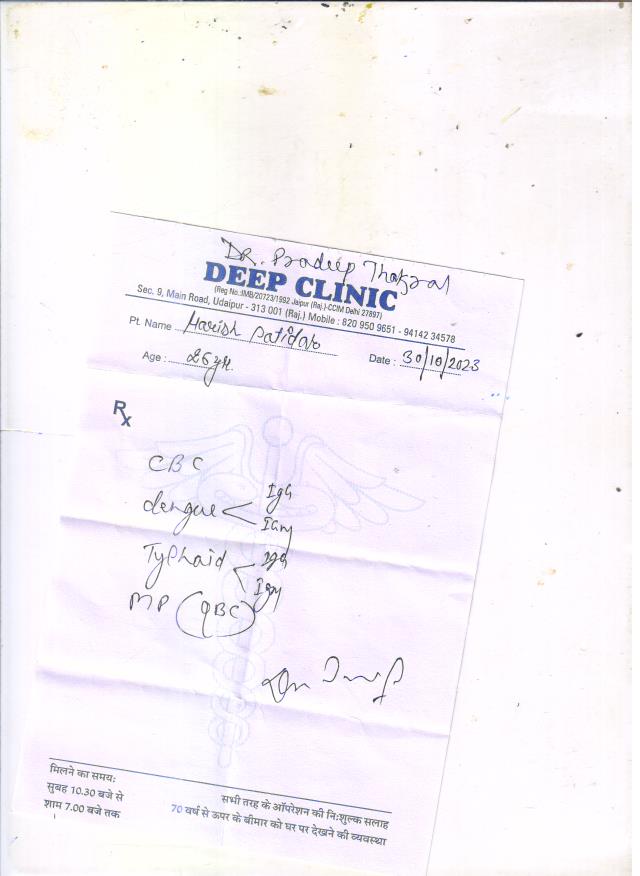 DR. Pradeep Thakral
DEEP CLINIC
(Reg No.:IMB/20723/1992 Jaipur (Raj.)-CCIM Delhi 27897)
Sec. 9, Main Road, Udaipur - 313 001 (Raj.) Mobile : 820 950 9651 - 94142 34578
Pt. Name Harish Patidar
Date : 30/10/2023
Age : 26 yr.
Rx
CBC
dengue < IgG
IgM
Typhaid < IgG
IgM
MP (QBC)
मिलने का समय:
सुबह 10.30 बजे से
शाम 7.00 बजे तक
सभी तरह के ऑपरेशन की नि:शुल्क सलाह
70 वर्ष से ऊपर के बीमार को घर पर देखने की व्यवस्था